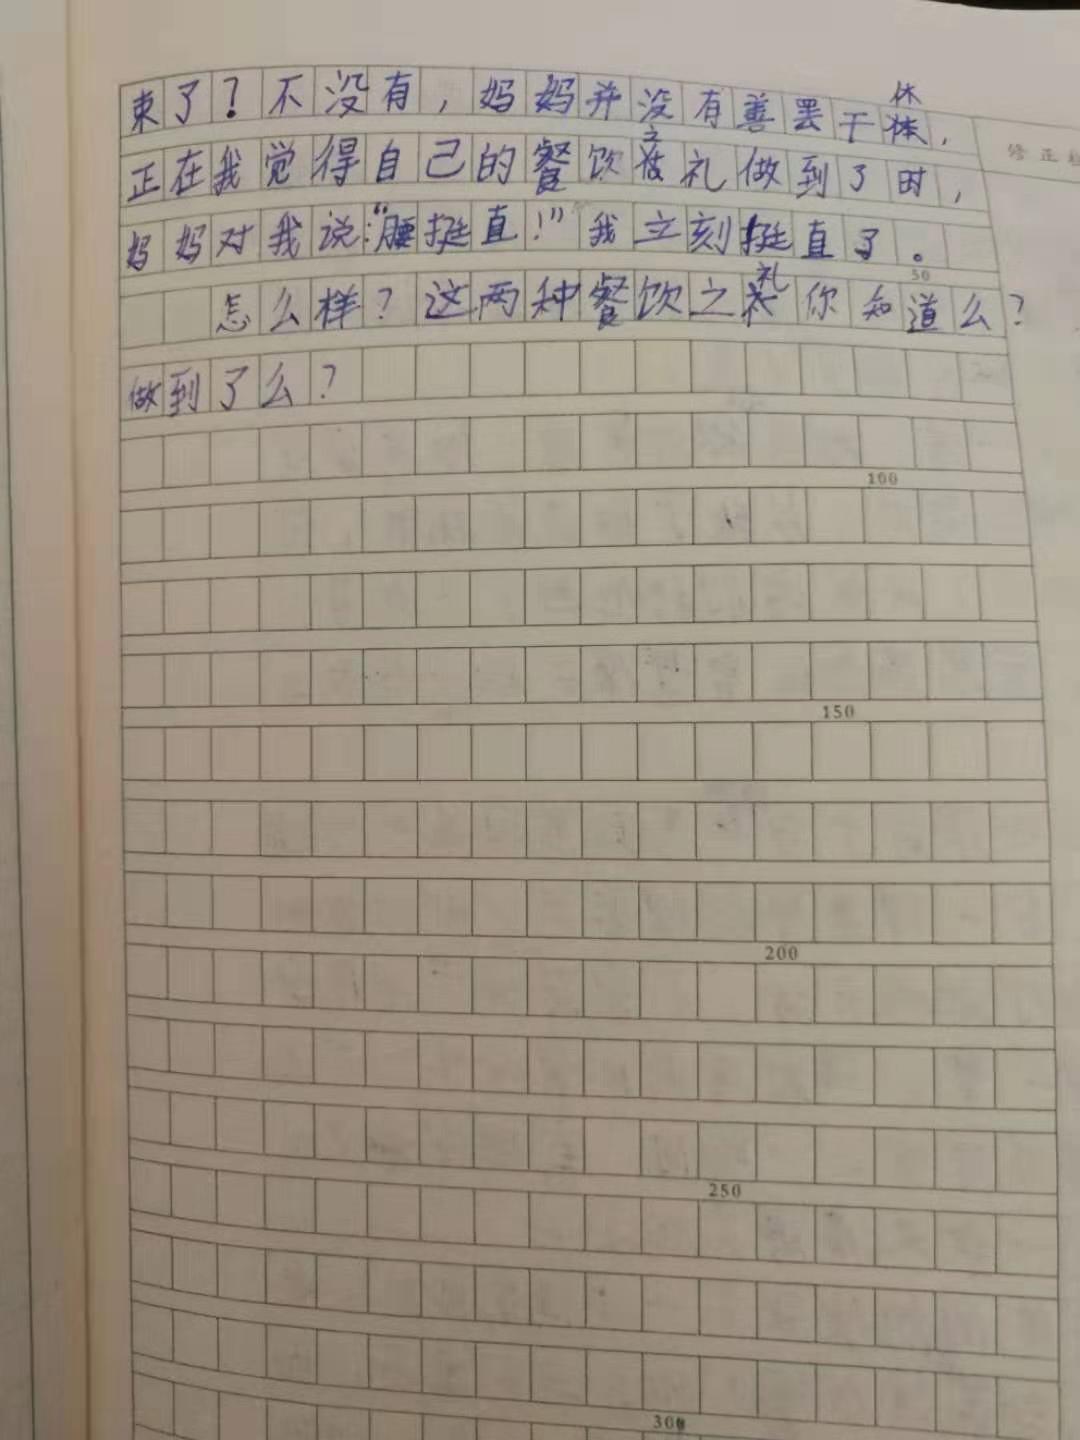 束了？不没有，妈妈并没有善罢干休，
正在我觉得自己的餐饮之礼做到了时，
妈妈对我说：“腰挺直！”我立刻挺直了。
怎么样？这两种餐饮之礼你知道么？
做到了么？
修正
50
100
150
200
250
300